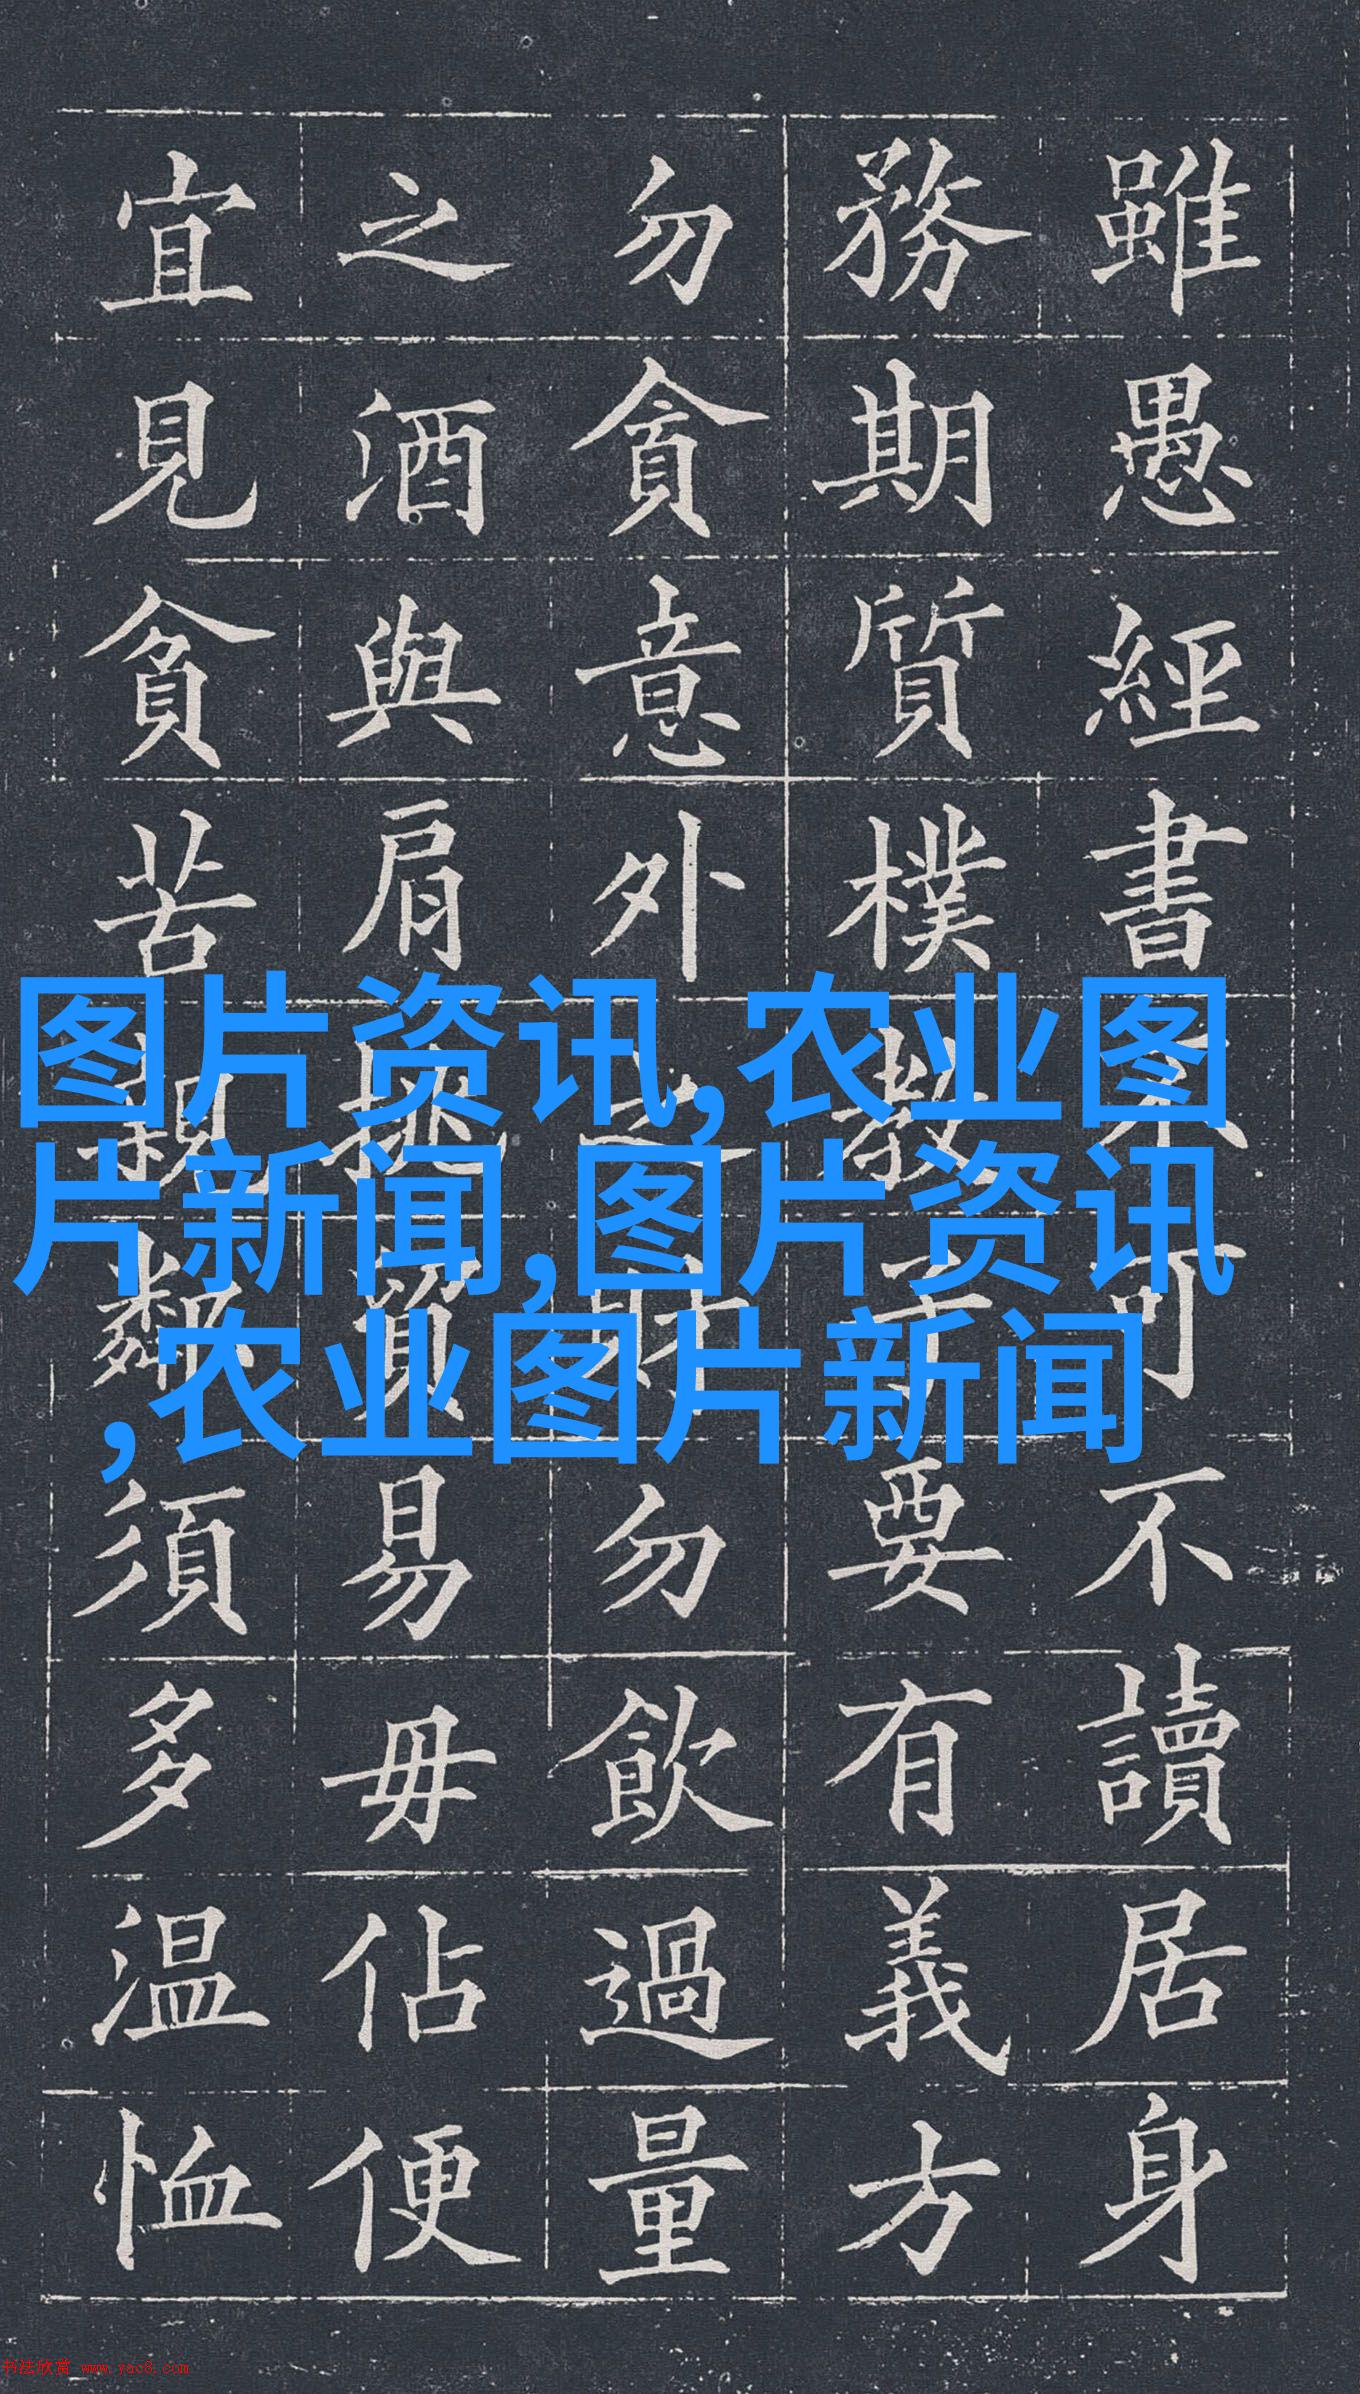 雖愚經書不可不讀居身
務期質樸教子要有義方
勿貪意外之財勿飲過量
之酒與肩挑貿易毋佔便
宜見貧苦親鄰須多温恤
图片资讯,农业图
片新闻,图片资讯
,农业图片新闻
书法欣赏 www.yac8.com